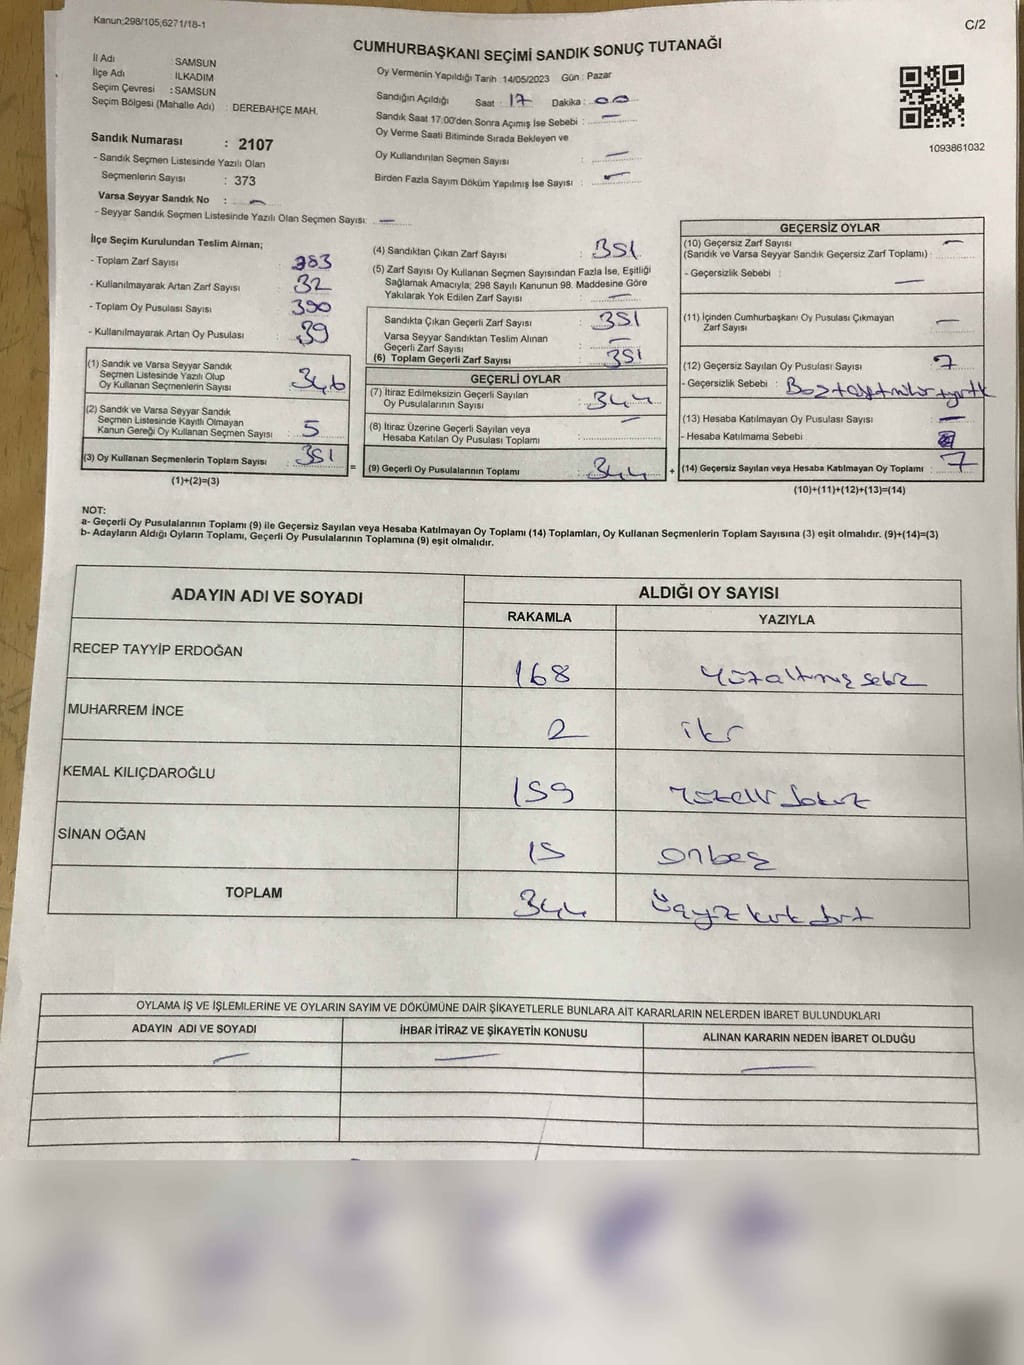 Kanun;298/105;6271/18-1
C/2
CUMHURBAŞKANI SEÇİMİ SANDIK SONUÇ TUTANAĞI
İl Adı : SAMSUN
İlçe Adı : İLKADIM
Seçim Çevresi : SAMSUN
Seçim Bölgesi (Mahalle Adı) : DEREBAHÇE MAH.
Sandık Numarası : 2107
- Sandık Seçmen Listesinde Yazılı Olan
Seçmenlerin Sayısı : 373
Varsa Seyyar Sandık No : —
- Seyyar Sandık Seçmen Listesinde Yazılı Olan Seçmen Sayısı: —
Oy Vermenin Yapıldığı Tarih :14/05/2023 Gün : Pazar
Sandığın Açıldığı Saat : 17 Dakika : 00
Sandık Saat 17:00'den Sonra Açımış İse Sebebi : —
Oy Verme Saati Bitiminde Sırada Bekleyen ve
Oy Kullandırılan Seçmen Sayısı : —
Birden Fazla Sayım Döküm Yapılmış İse Sayısı : —
1093861032
İlçe Seçim Kurulundan Teslim Alınan;
- Toplam Zarf Sayısı : 383
- Kullanılmayarak Artan Zarf Sayısı : 32
- Toplam Oy Pusulası Sayısı : 390
- Kullanılmayarak Artan Oy Pusulası : 39
(1) Sandık ve Varsa Seyyar Sandık
Seçmen Listesinde Yazılı Olup
Oy Kullanan Seçmenlerin Sayısı : 346
(2) Sandık ve Varsa Seyyar Sandık
Seçmen Listesinde Kayıtlı Olmayan
Kanun Gereği Oy Kullanan Seçmen Sayısı : 5
(3) Oy Kullanan Seçmenlerin Toplam Sayısı : 351
(1)+(2)=(3)
(4) Sandıktan Çıkan Zarf Sayısı : 351
(5) Zarf Sayısı Oy Kullanan Seçmen Sayısından Fazla İse, Eşitliği
Sağlamak Amacıyla; 298 Sayılı Kanunun 98. Maddesine Göre
Yakılarak Yok Edilen Zarf Sayısı : —
Sandıkta Çıkan Geçerli Zarf Sayısı : 351
Varsa Seyyar Sandıktan Teslim Alınan
Geçerli Zarf Sayısı : —
(6) Toplam Geçerli Zarf Sayısı : 351
GEÇERLİ OYLAR
(7) İtiraz Edilmeksizin Geçerli Sayılan
Oy Pusulalarının Sayısı : 344
(8) İtiraz Üzerine Geçerli Sayılan veya
Hesaba Katılan Oy Pusulası Toplamı : —
= (9) Geçerli Oy Pusulalarının Toplamı : 344
GEÇERSİZ OYLAR
(10) Geçersiz Zarf Sayısı
(Sandık ve Varsa Seyyar Sandık Geçersiz Zarf Toplamı) : —
- Geçersizlik Sebebi : —
(11) İçinden Cumhurbaşkanı Oy Pusulası Çıkmayan
Zarf Sayısı : —
(12) Geçersiz Sayılan Oy Pusulası Sayısı : 7
- Geçersizlik Sebebi :
(13) Hesaba Katılmayan Oy Pusulası Sayısı : —
- Hesaba Katılmama Sebebi :
+ (14) Geçersiz Sayılan veya Hesaba Katılmayan Oy Toplamı : 7
(10)+(11)+(12)+(13)=(14)
NOT:
a- Geçerli Oy Pusulalarının Toplamı (9) ile Geçersiz Sayılan veya Hesaba Katılmayan Oy Toplamı (14) Toplamları, Oy Kullanan Seçmenlerin Toplam Sayısına (3) eşit olmalıdır. (9)+(14)=(3)
b- Adayların Aldığı Oyların Toplamı, Geçerli Oy Pusulalarının Toplamına (9) eşit olmalıdır.
ADAYIN ADI VE SOYADI
ALDIĞI OY SAYISI
RAKAMLA YAZIYLA
RECEP TAYYİP ERDOĞAN 168 Yüzaltmış sekiz
MUHARREM İNCE 2 iki
KEMAL KILIÇDAROĞLU 159 Yüzelli dokuz
SİNAN OĞAN 15 onbeş
TOPLAM 344 üçyüz kırk dört
OYLAMA İŞ VE İŞLEMLERİNE VE OYLARIN SAYIM VE DÖKÜMÜNE DAİR ŞİKAYETLERLE BUNLARA AİT KARARLARIN NELERDEN İBARET BULUNDUKLARI
ADAYIN ADI VE SOYADI İHBAR İTİRAZ VE ŞİKAYETİN KONUSU ALINAN KARARIN NEDEN İBARET OLDUĞU
— — —